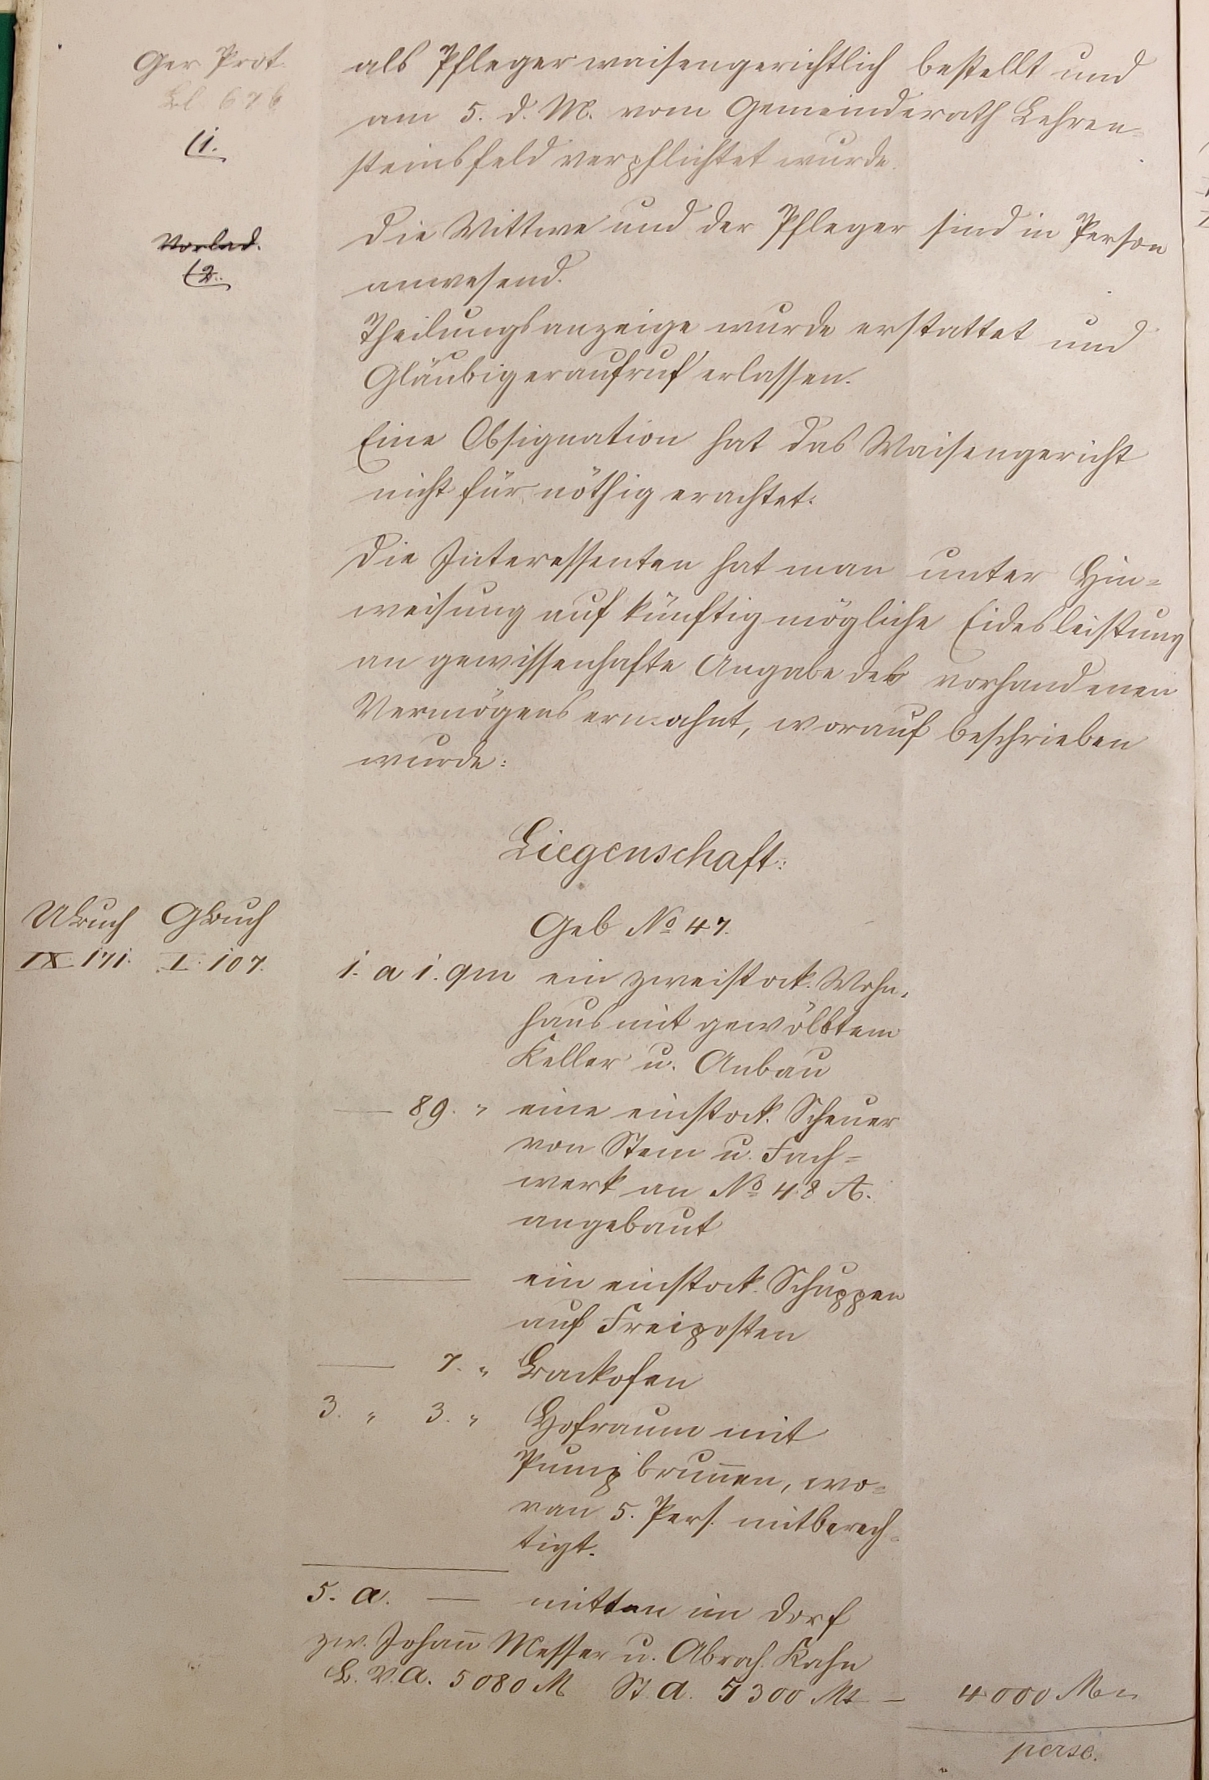 Ger. Prot.
Bl. 676
(1.
als Pfleger waisengerichtlich bestellt und
am 5. d. M. vom Gemeinderath Lehren-
steinsfeld verpflichtet wurde.
Vorlad.
(2.
Die Wittwe und der Pfleger sind in Person
anwesend.
Theilungsanzeige wurde erstattet und
Gläubigeraufruf erlassen.
Eine Obsignation hat das Waisengericht
nicht für nöthig erachtet.
Die Interessenten hat man unter Hin-
weisung auf künftig mögliche Eidesleistung
an gewissenhafte Angabe des vorhandenen
Vermögens ermahnt, worauf beschrieben
wurde:
Liegenschaft:
UBuch GBuch
Geb No 47.
IX 171. I. 107.
1. a 1. qm ein zweistock. Wohn-
haus mit gewölbtem
Keller u. Anbau
— 89. " eine einstock. Scheuer
von Stein u. Fach-
werk an No 48 A.
angebaut
— ein einstock. Schuppen
auf Freiposten
— 7. " Backofen
3. " 3. " Hofraum mit
Pumpbrunnen, wo-
ran 5. Pers. mitberech-
tigt.
5. a. — mitten im Dorf
zw. Johann Messer u. Abrah. Kahn
B. V. A. 5080 M St. A. 5300 M — 4000 M
perse.